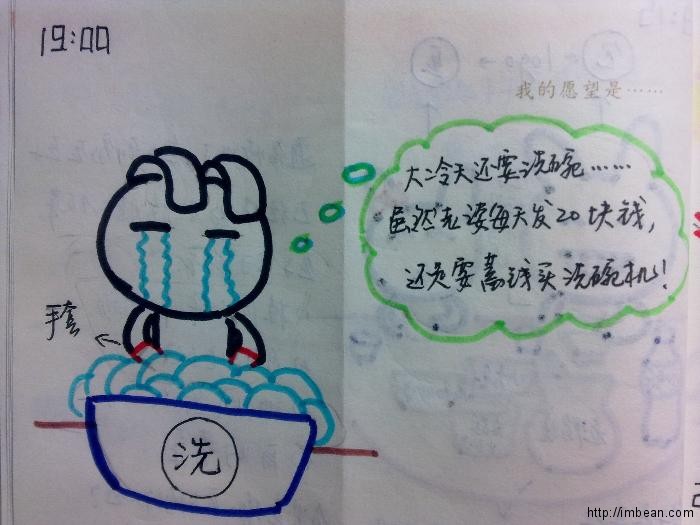 19:00
我的愿望是……
大冷天还要洗碗……
虽然老婆每天发20块钱,
还是要蓄钱买洗碗机!
手套
洗
http://imbean.com